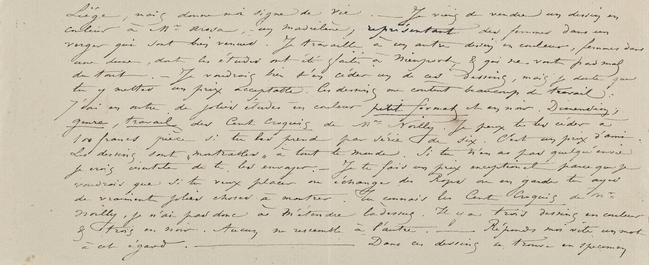 Liège, mais donne moi signe de vie. — Je viens de vendre un dessin en
couleur à Mr Arosa, un madrilène, représentant des femmes dans un
verger qui sont bien venues. Je travaille à un autre dessin en couleur, femmes dans
une dune, dont les études ont été faites à Nieuport, & qui ne vont pas mal
du tout. — Je voudrais bien t'en céder un de ces dessins, mais je doute que
tu y mettes un prix acceptable. Ces dessins me coutent beaucoup de travail.
J'ai en outre de jolies études en couleur petit format et en noir. Dimensions,
genre, travail des Cent Croquis de Mr Noilly. Je peux te les céder à
100 francs pièce si tu les prend par série de six. C'est un prix d'ami.
Les dessins sont "montrables" à tout le monde. Si tu n'en a pas quelqu'envie
je crois inutile de te les envoyer. — Je te fais un prix exceptionel parce que je
voudrais que si tu veux placer ou échange des Rops ou en garde tu ayes
de vraiment jolies choses à montrer. Tu connais les Cent Croquis de Mr
Noilly, je n'ai pas donc à m'étendre là dessus. Il y a trois dessins en couleur
& trois en noir. Aucun ne ressemble à l'autre. — Réponds moi vite un mot
à cet égard. — Dans ces dessins se trouve un specimen